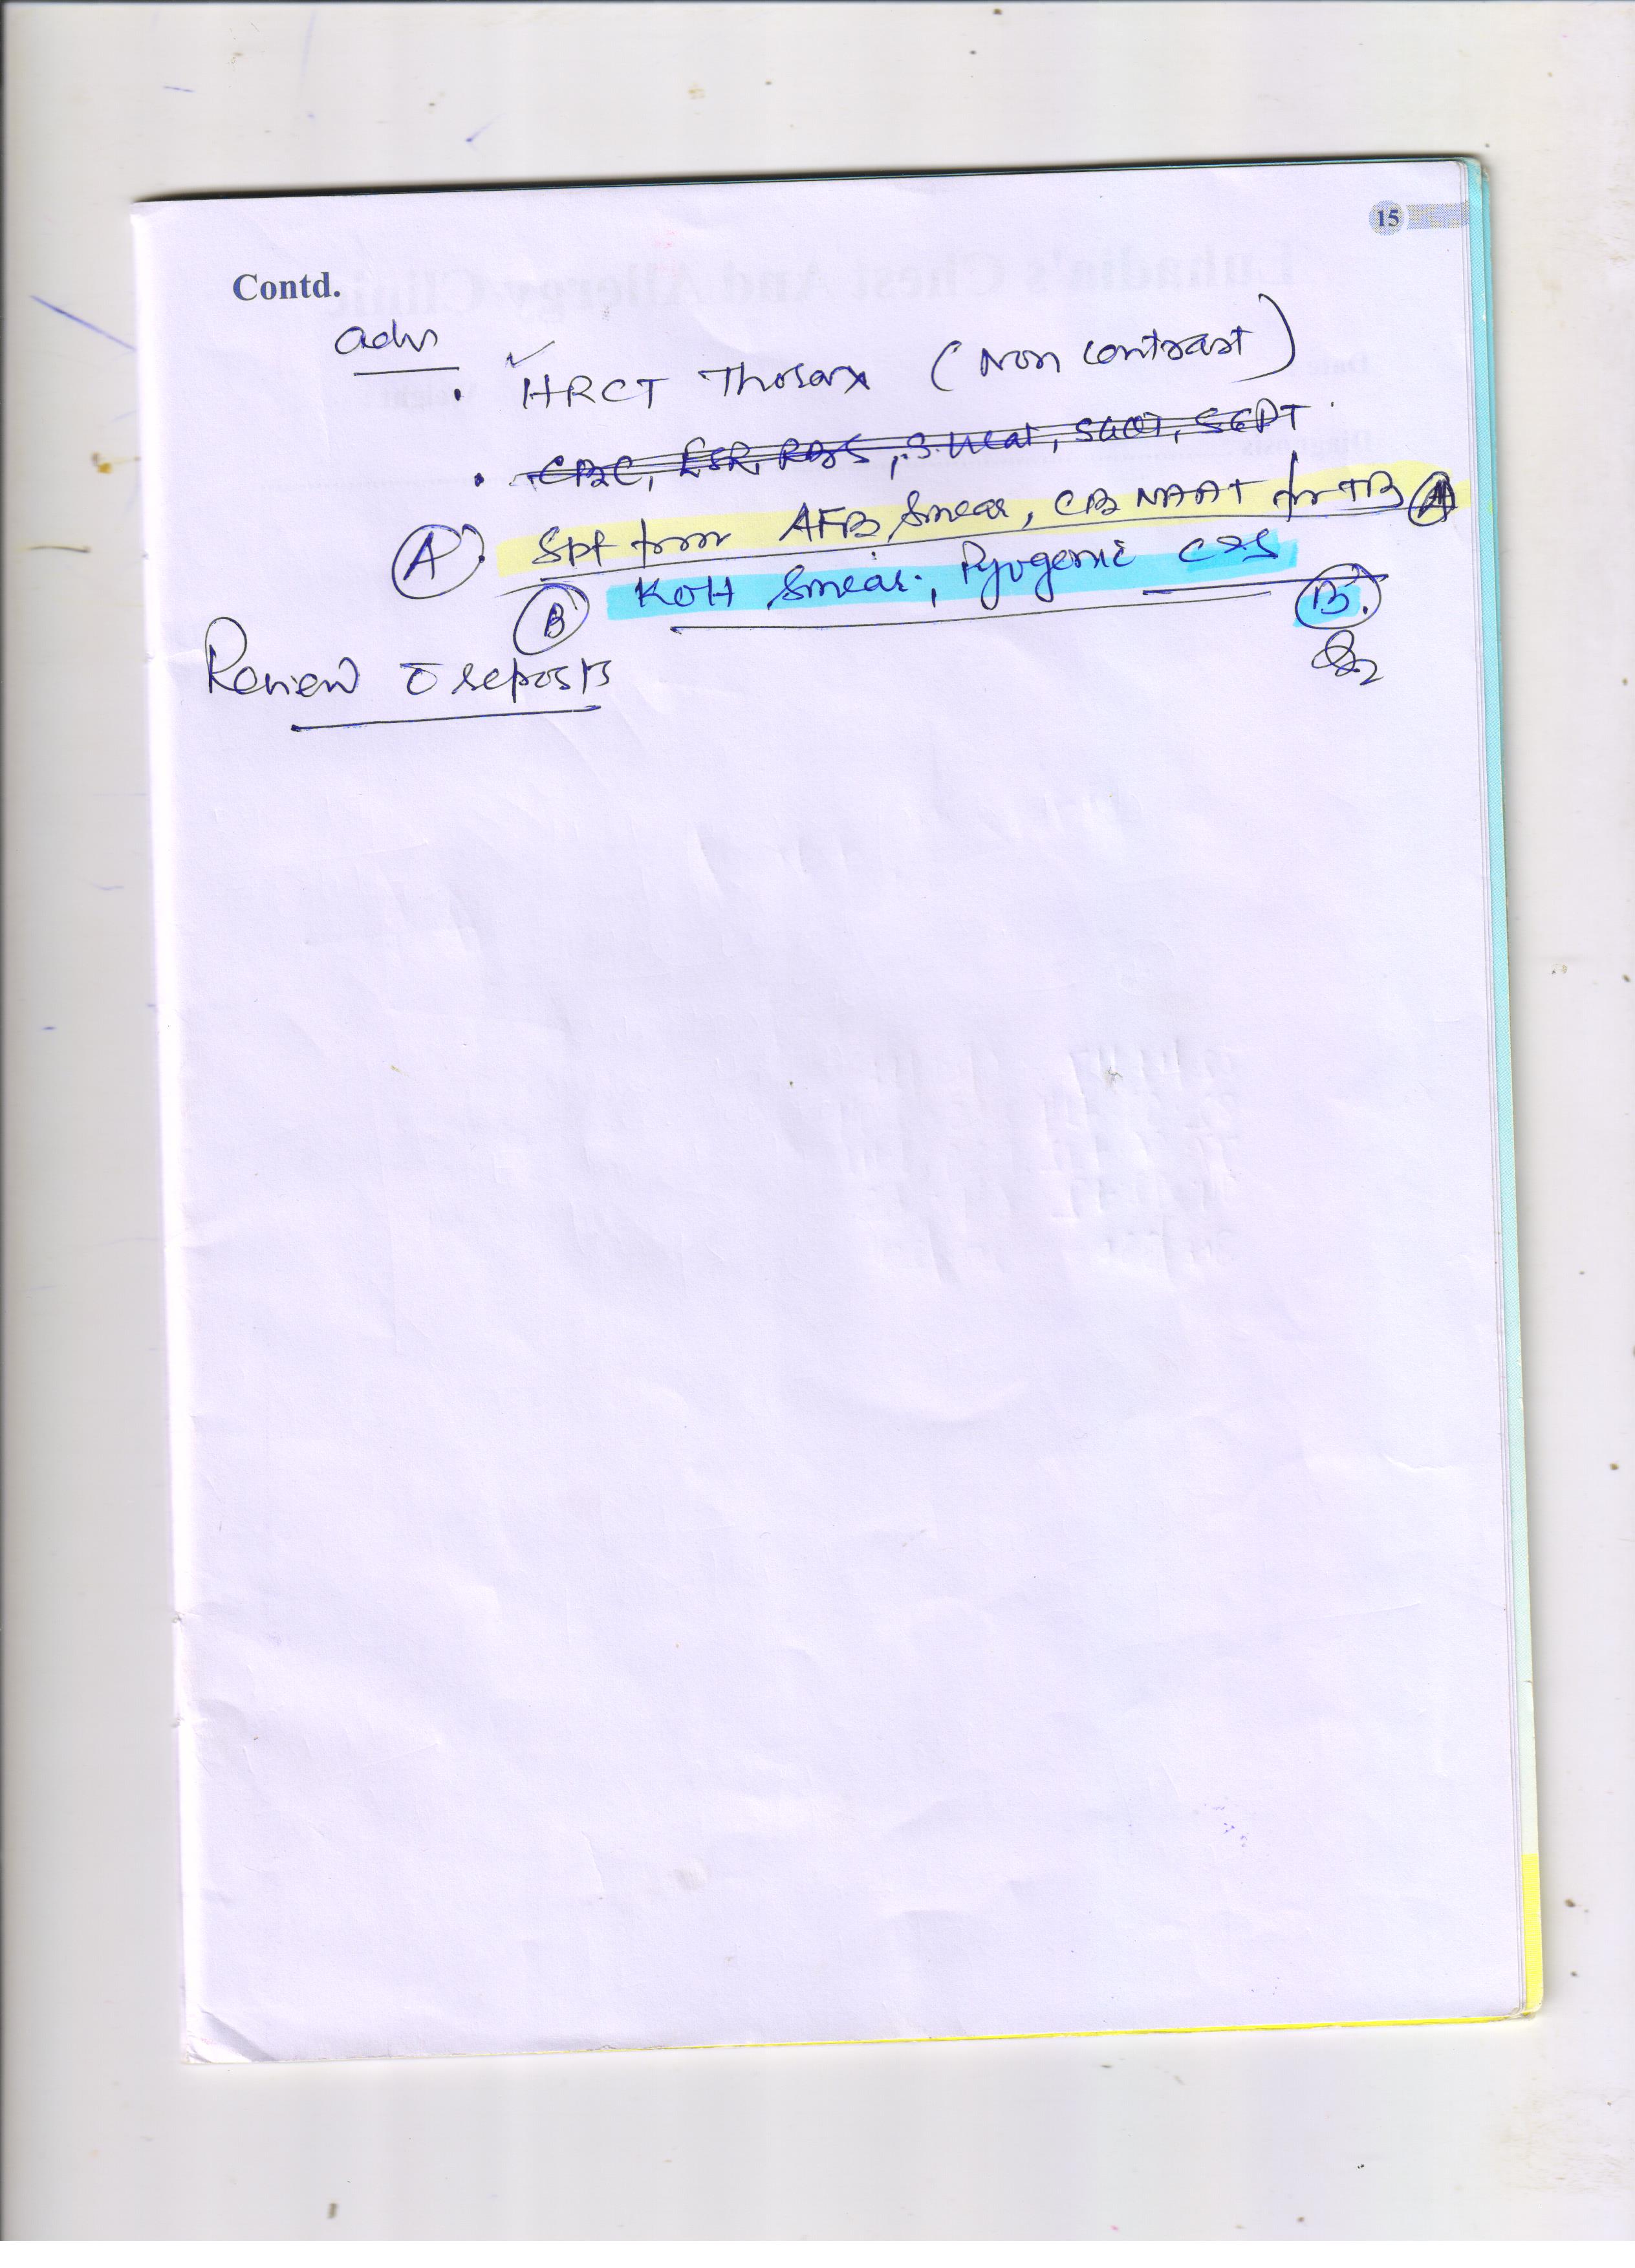 15
Contd.
adv
• HRCT Thorax (Non contrast)
• CBC, ESR, RBS, S. Creat, SGOT, SGPT
(A) Spt for AFB Smear, CB NAAT for TB (A)
(B) KOH Smear, Pyogenic C&S (B)
Review c̄ reports